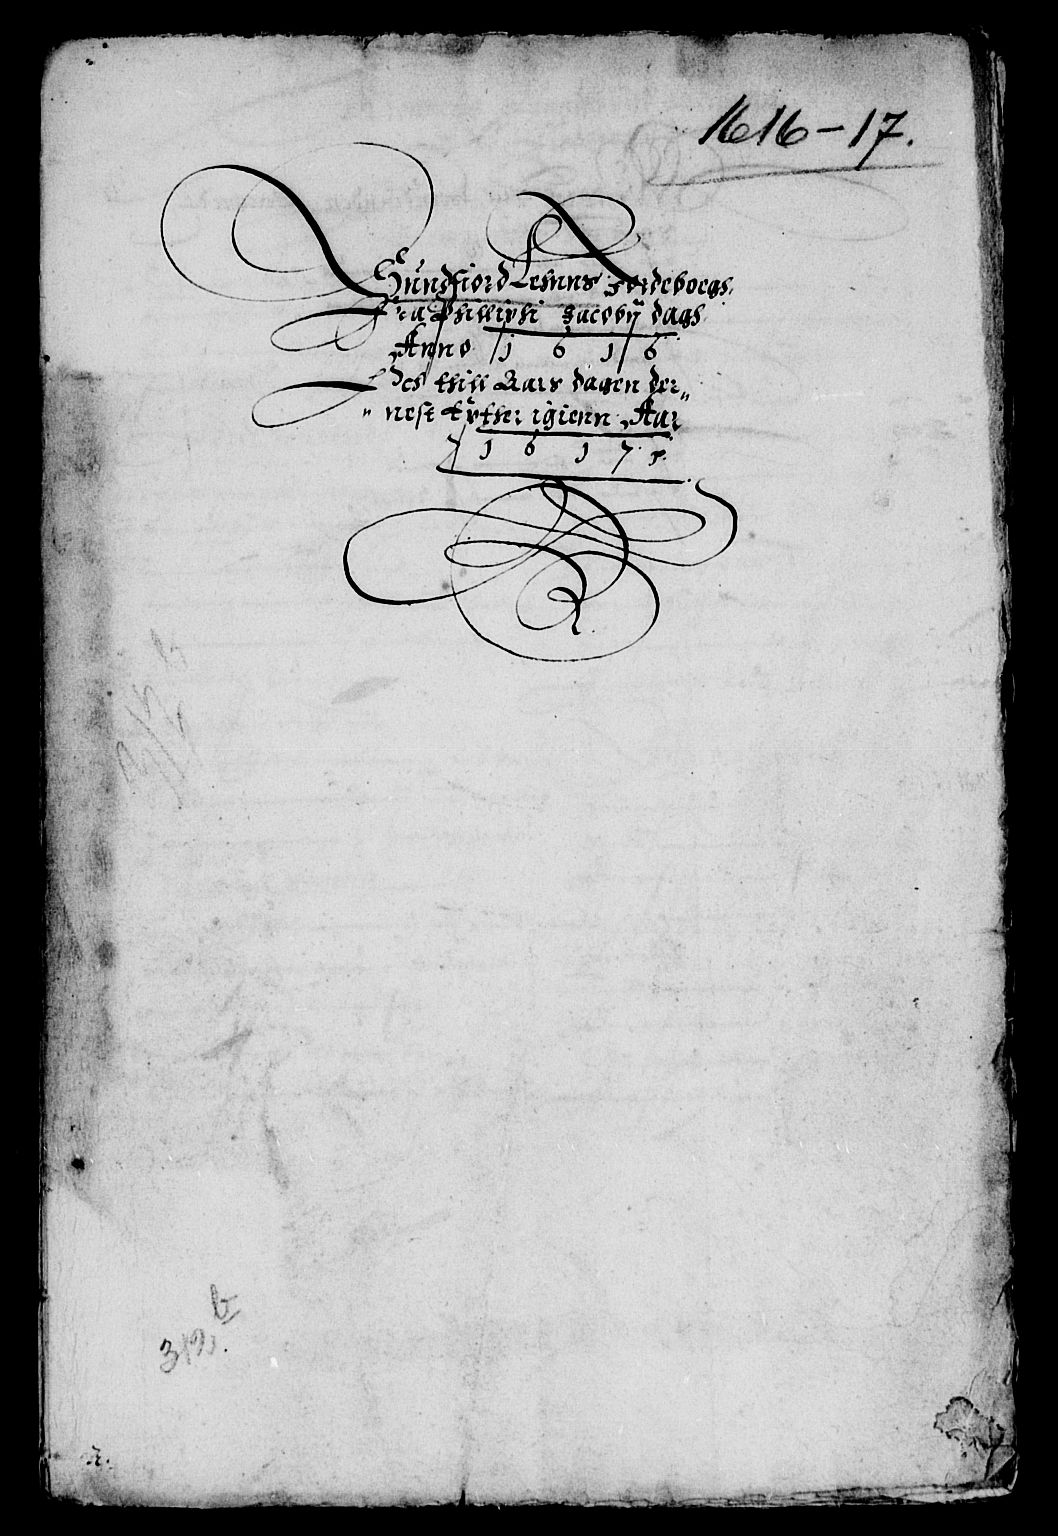 1616-17.
Sŭndfiord Lehnns Jordeboegs
Fra Philliphi Jacobij dagh
Anno 1616
Och thill Aars dagen der„
„nest Effther igienn Aar
1617
312
b